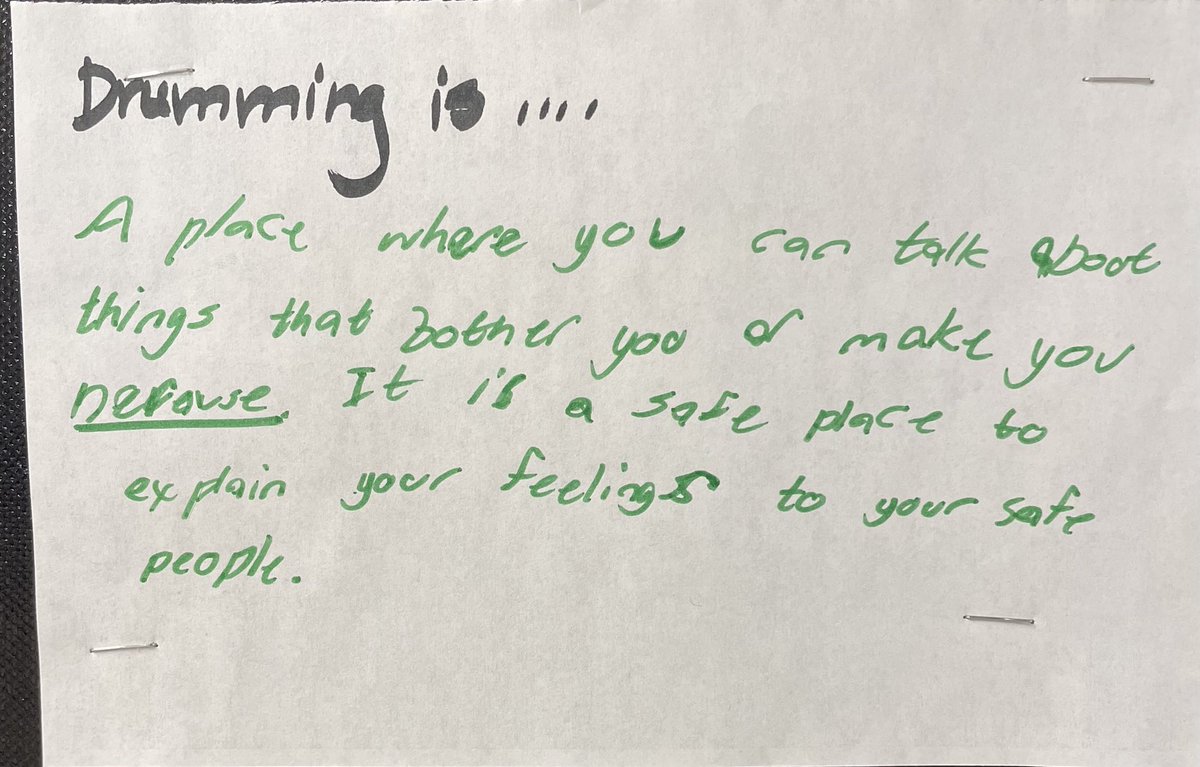 Drumming is ....
A place where you can talk about
things that bother you or make you
nerause. It is a safe place to
explain your feelings to your safe
people.